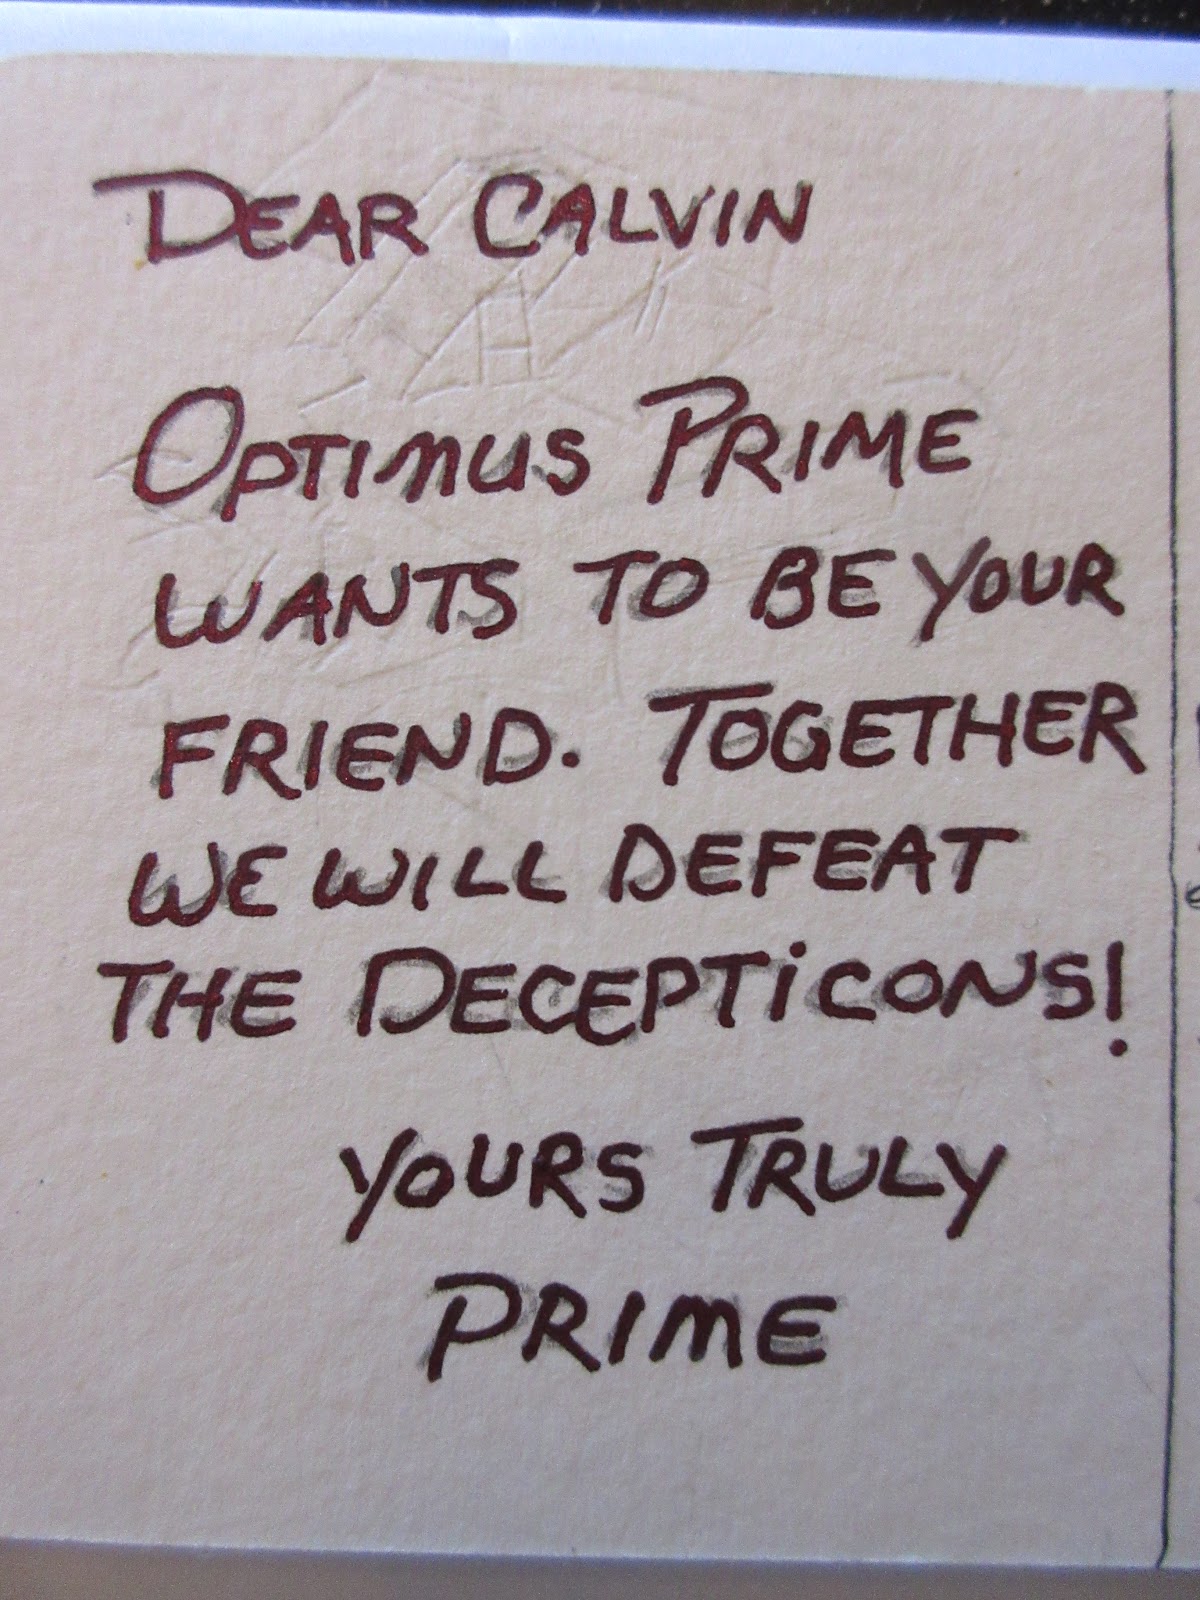 DEAR CALVIN
OPTIMUS PRIME
WANTS TO BE YOUR
FRIEND. TOGETHER
WE WILL DEFEAT
THE DECEPTiCONS!
YOURS TRULY
PRIME